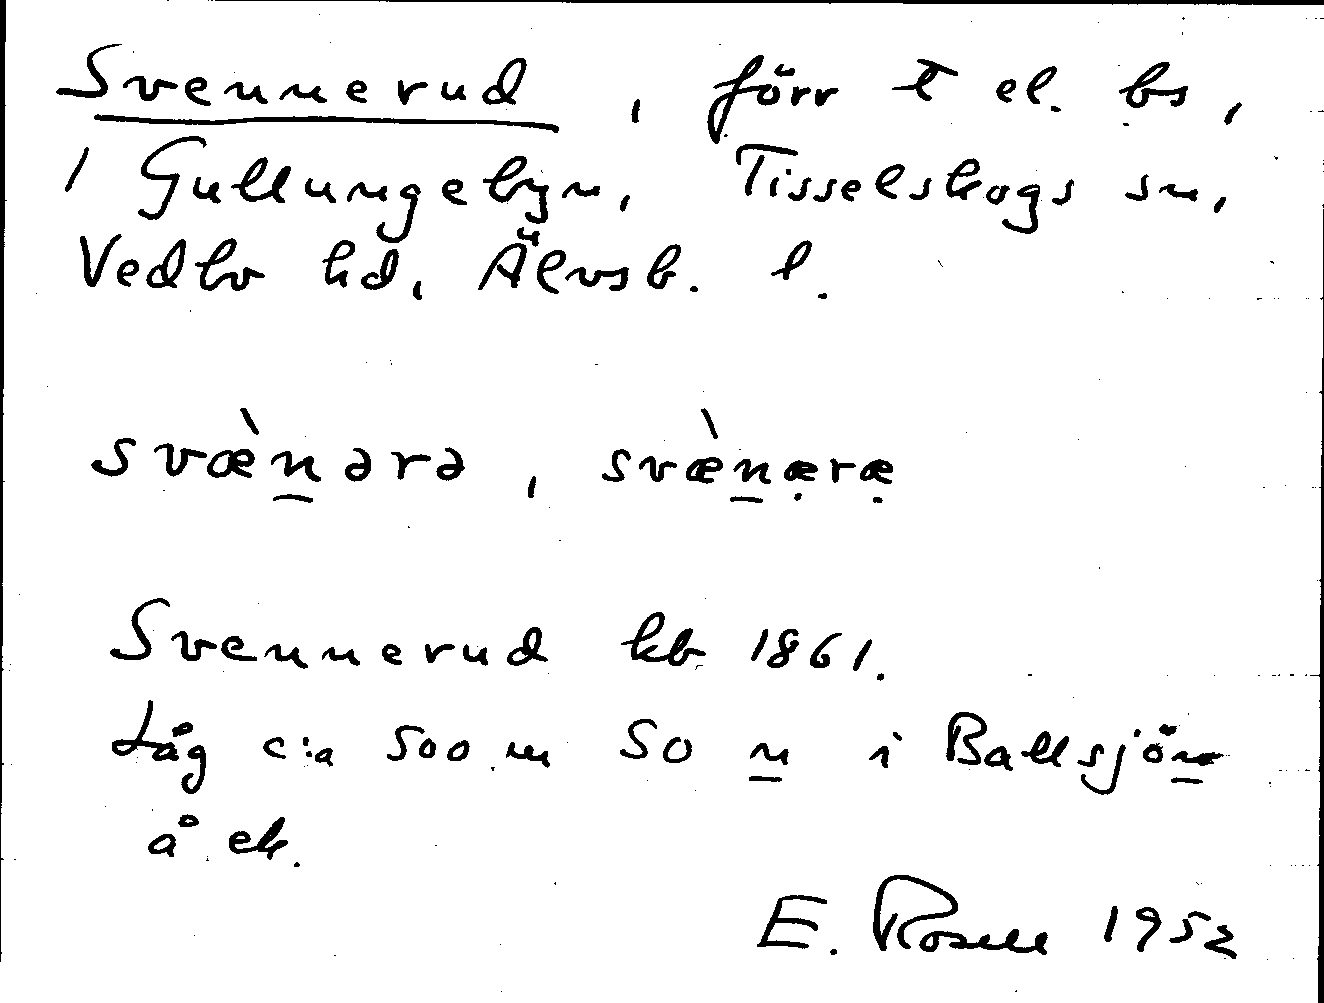 Svennerud, förr t el. bs,
i Gullungebyn, Tisselskogs sn,
Vedbo hd, Älvsb. l.
svæ̀n̲ərə, svæ̀n̲æ̣ræ̣
Svennerud kb 1861.
Låg c:a 500 m SO n̲ i Ballsjön̲
å ek.
E. Rosell 1952